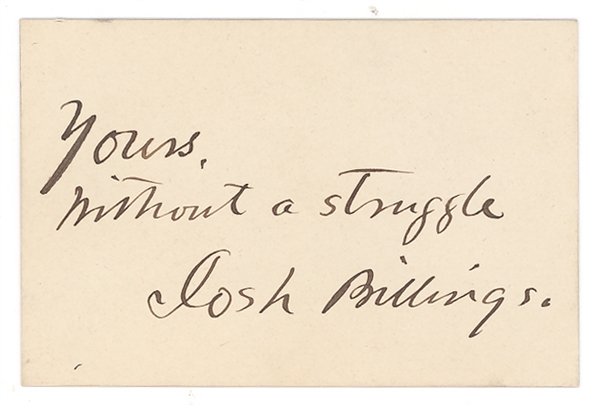 Yours,
Without a struggle
Josh Billings.